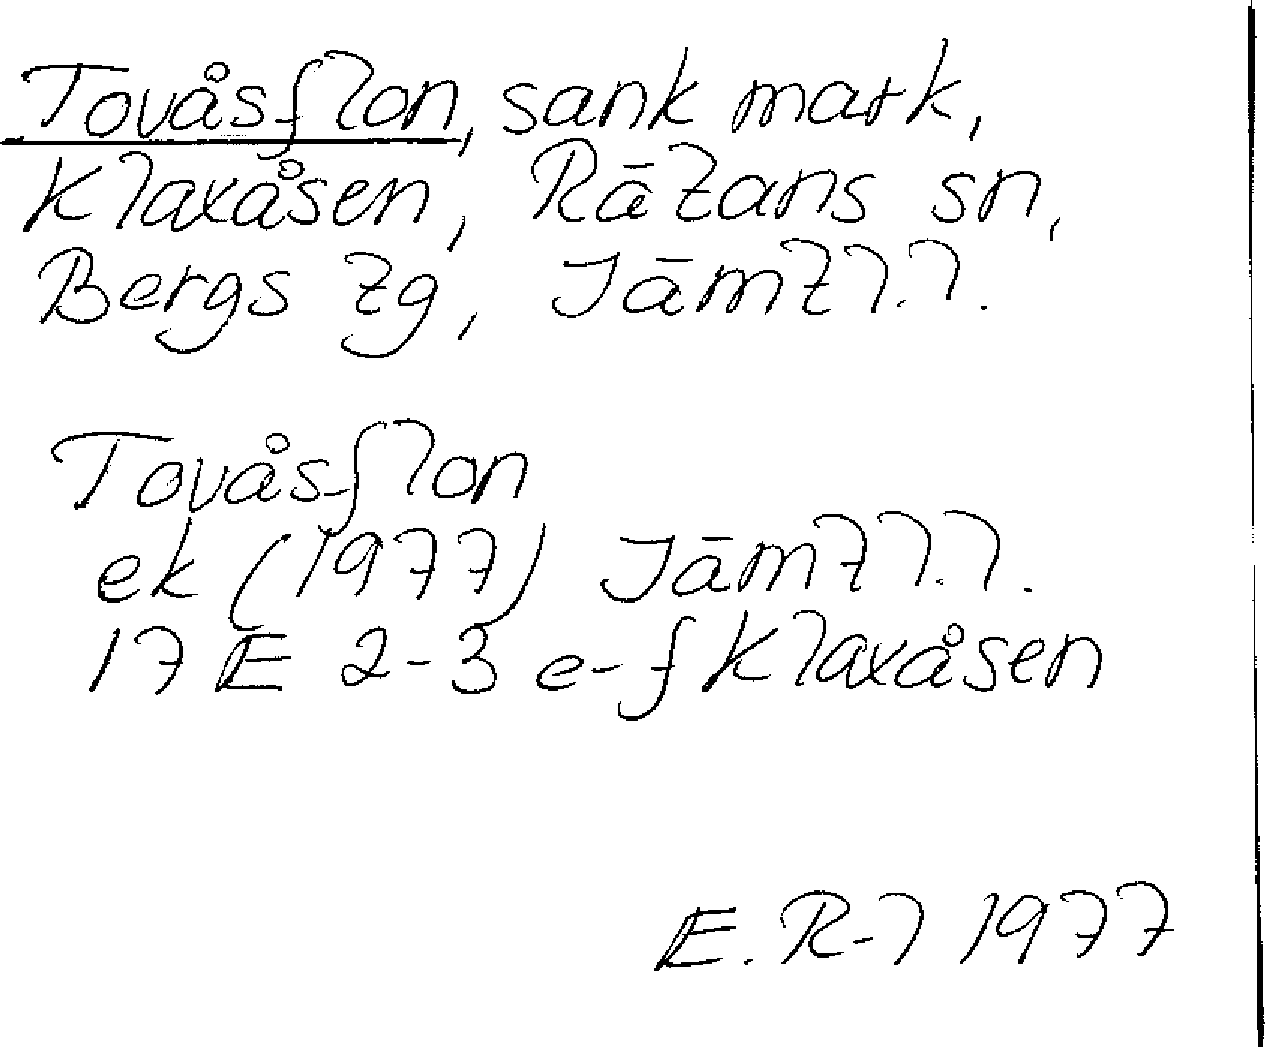 Tovåsflon, sank mark,
Klaxåsen, Rätans sn,
Bergs tg, Jämtl.l.
Tovåsflon
ek (1977) Jämtl.l.
17 E 2-3 e-f Klaxåsen
E. R-l 1977